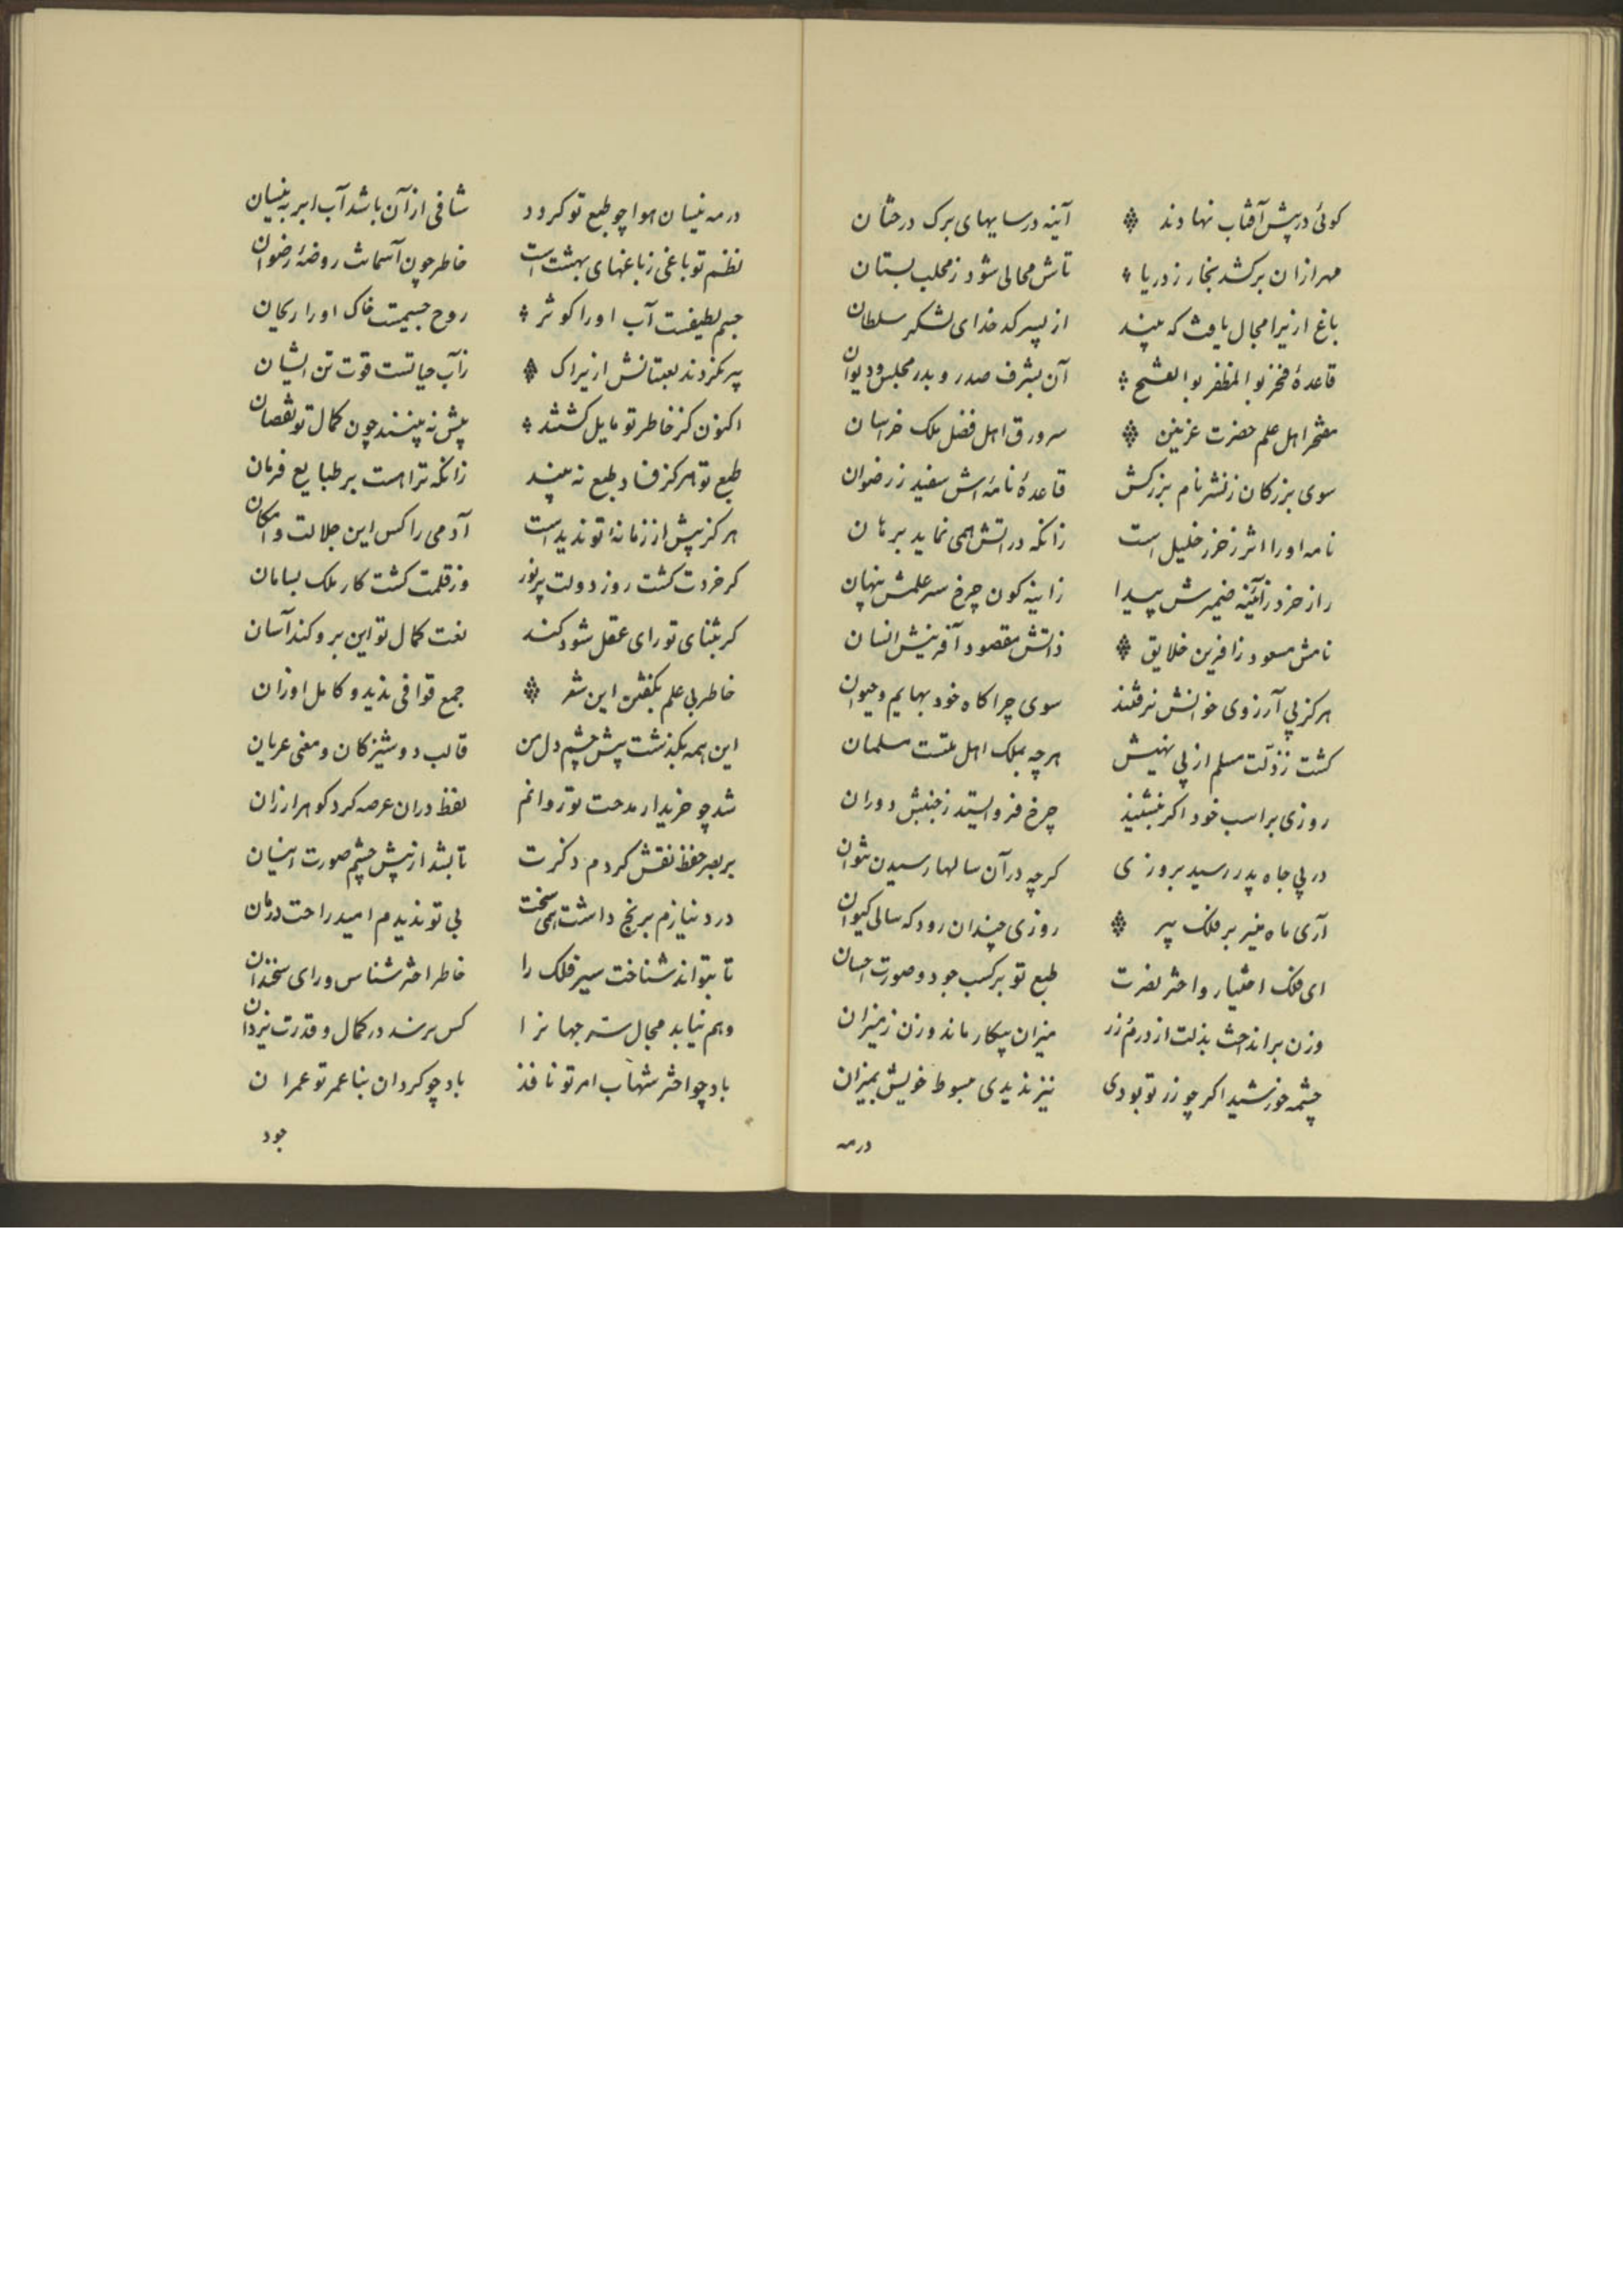 کوئی درپیش آفتاب نهادند آینه در سایهای برک درختان
مهر ازان برکشد بخار ز دریا تاش محالی شود ز محلب بستان
باغ ازیرا مجال یافت که بیند از پسر کدخدای لشکر سلطان
قاعدۀ فخر بو المظفر بو الفتح آن بشرف صدر و بدر مجلس و دیوان
مفخر اهل علم حضرت غزنین سرور ق اهل فضل ملک خراسان
سوی بزرکان ز نشر نام بزرکش قاعدۀ نامه‌اش سفید ز رضوان
نامه اورا اثر ز خرز خلیل است زانکه در اتش همی نماید برهان
راز خرد ز آئینه ضمیرش پیدا ز اینه کون چرخ سر علمش پنهان
نامش مسعود ز افرین خلایق ذاتش مقصود آفرینش انسان
هرکز بی آرزوی خوانش نرفتند سوی چراکاه خود بهایم و حیوان
کشت ز زلت مسلم از پی نهیش هرچه بملک اهل ملتست مسلمان
روزی بر اسب خود اکر بنشیند چرخ فرو ایستد ز جنبش دوران
در پی جاه پدر رسید بروزی کرچه در آن سالها رسیدن نتوان
آری ماه منیر بر فلک پیر روزی چندان رود که سالی کیوان
ای فلک اختیار و اختر نصرت طبع تو برکسب جود و صورت احسان
وزن برانداخت بذلت از درم زر میزان بیکار ماند وزن ز میزان
چشمه خورشید اکر چو زر تو بودی نیز ندیدی هبوط خویش بمیزان
درمه
درمه نیسان هوا چو طبع تو کردد شافی ازآن باشد آب ابر به نیسان
نظم تو باغی ز باغهای بهشت است خاطر چون آسمانت روضۀ رضوان
جسم لطیفست آب اورا کوثر روح جسیمست خاک اورا ریحان
پیر نکردند لعبتانش ازیراک زآب حیاتست قوت تن ایشان
اکنون کز خاطر تو مایل کشتند پیش نه بینند چون کمال تو نقصان
طبع تو هرکز فساد طبع نه بیند زانکه ترا هست بر طبایع فرمان
هرکز پیش از زمانه تو ندیداست آدمی را کس این جلالت و امکان
کر خردت کشت روز دولت پرنور وز قلمت کشت کار ملک بسامان
کر بثنای تو رای عقل شود کند نعت کمال تو این برو کند آسان
خاطر بی علم بکفتن این شعر جمع قوافی ندید و کامل اوزان
این همه بکذشت پیش چشم دل من قالب دوشیزکان و معنی عریان
شد چو خریدار مدحت تو روانم لفظ دران عرصه کرد کوهر ارزان
بر بصر حفظ نقش کردم ذکرت تا بشد از پیش چشم صورت ایشان
درد نیازم برنج داشت همی سخت بی تو ندیدم امید راحت درمان
تا بتواند شناخت سیر فلک را خاطر اختر شناس ورای سخندان
وهم نیابد مجال ستر جهانرا کس نرسد در کمال و قدرت یزدان
باد چو اختر شهاب امر تو نافذ باد چو کردان بنا عمر تو عمران
جود